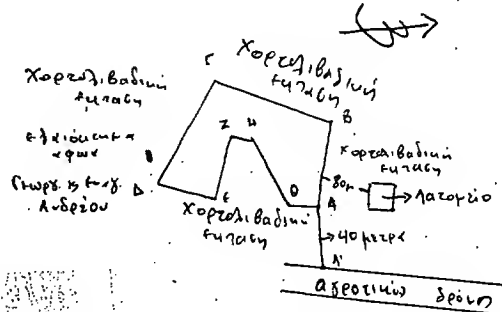 Γ
Χορτολιβαδική
έκταση
Χορτολιβαδική
έκταση
Β
Ζ Η
Χορτολιβαδική
έκταση
ελαιόκτημα
αφων
Γεωργ. κ Ευαγ.
Ανδρέου
Δ
80μ
Λατομείο
Ε
Θ
Α
Χορτολιβαδική
έκταση
40 μετρα
Α'
αγροτικού δρόμου